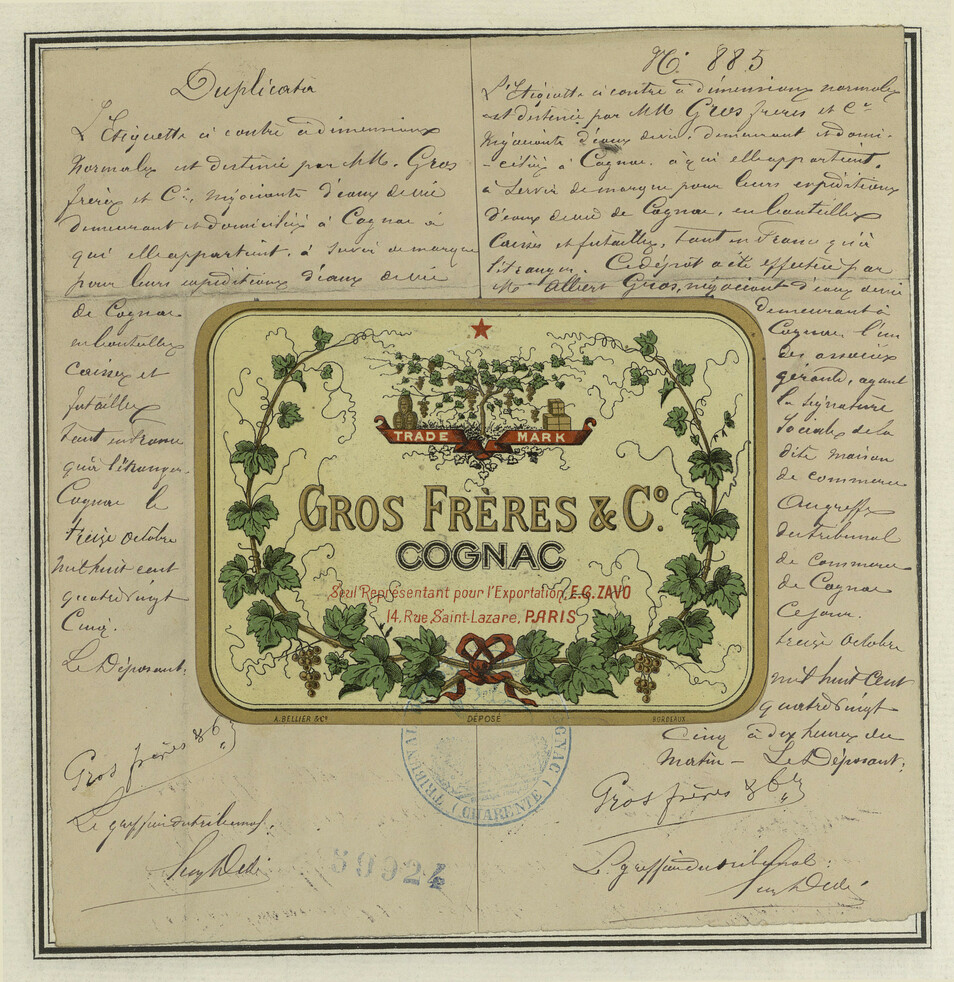 Duplicata
L'Etiquette ci contre à dimensions
normales est destinée par MM. Gros
frères et Cie, négociants d'eaux de vie
demeurant et domiciliés à Cognac à
qui elle appartient, à servir de marque
pour leurs expéditions d'eaux de vie
de Cognac
en bouteilles
caisses et
futailles
tant en France
qu'à l'étranger.
Cognac le
treize Octobre
mil huit cent
quatre vingt
Cinq.
Le Déposant:
Gros frères & Co
Le greffier du tribunal.
No. 885
L'Etiquette ci contre à dimensions normales
est destinée par MM Gros frères et Cie
négociants d'eaux de vie, demeurant et domi-
-ciliés à Cognac, à qui elle appartient,
à servir de marque pour leurs expéditions
d'eaux de vie de Cognac, en bouteilles
caisses et futailles, tant en France qu'à
l'étranger. Ce dépôt a été effectué par
Mr Albert Gros, négociant d'eaux de vie
demeurant à
Cognac, l'un
des associés
gérants, ayant
la signature
sociale de la
dite maison
de commerce
Au greffe
du tribunal
de Commerce
de Cognac
Ce jour
treize Octobre
mil huit Cent
quatre vingt
Cinq à dix heures du
Matin – Le Déposant:
Gros frères & Co
Le greffier du tribunal:
TRADE MARK
GROS FRÈRES & Co.
COGNAC
Seul Représentant pour l'Exportation, E.G. ZAVO
14, Rue Saint-Lazare, PARIS
A. BELLIER & Co DÉPOSÉ BORDEAUX
TRIBUNAL
GNAC
(CHARENTE)
50924